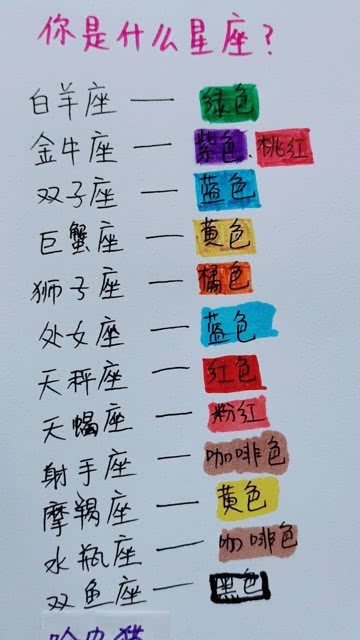 你是什么星座？
白羊座 — 绿色
金牛座 — 紫色、桃红
双子座 — 蓝色
巨蟹座 — 黄色
狮子座 — 橘色
处女座 — 蓝色
天秤座 — 红色
天蝎座 — 粉红
射手座 — 咖啡色
摩羯座 — 黄色
水瓶座 — 咖啡色
双鱼座 — 黑色